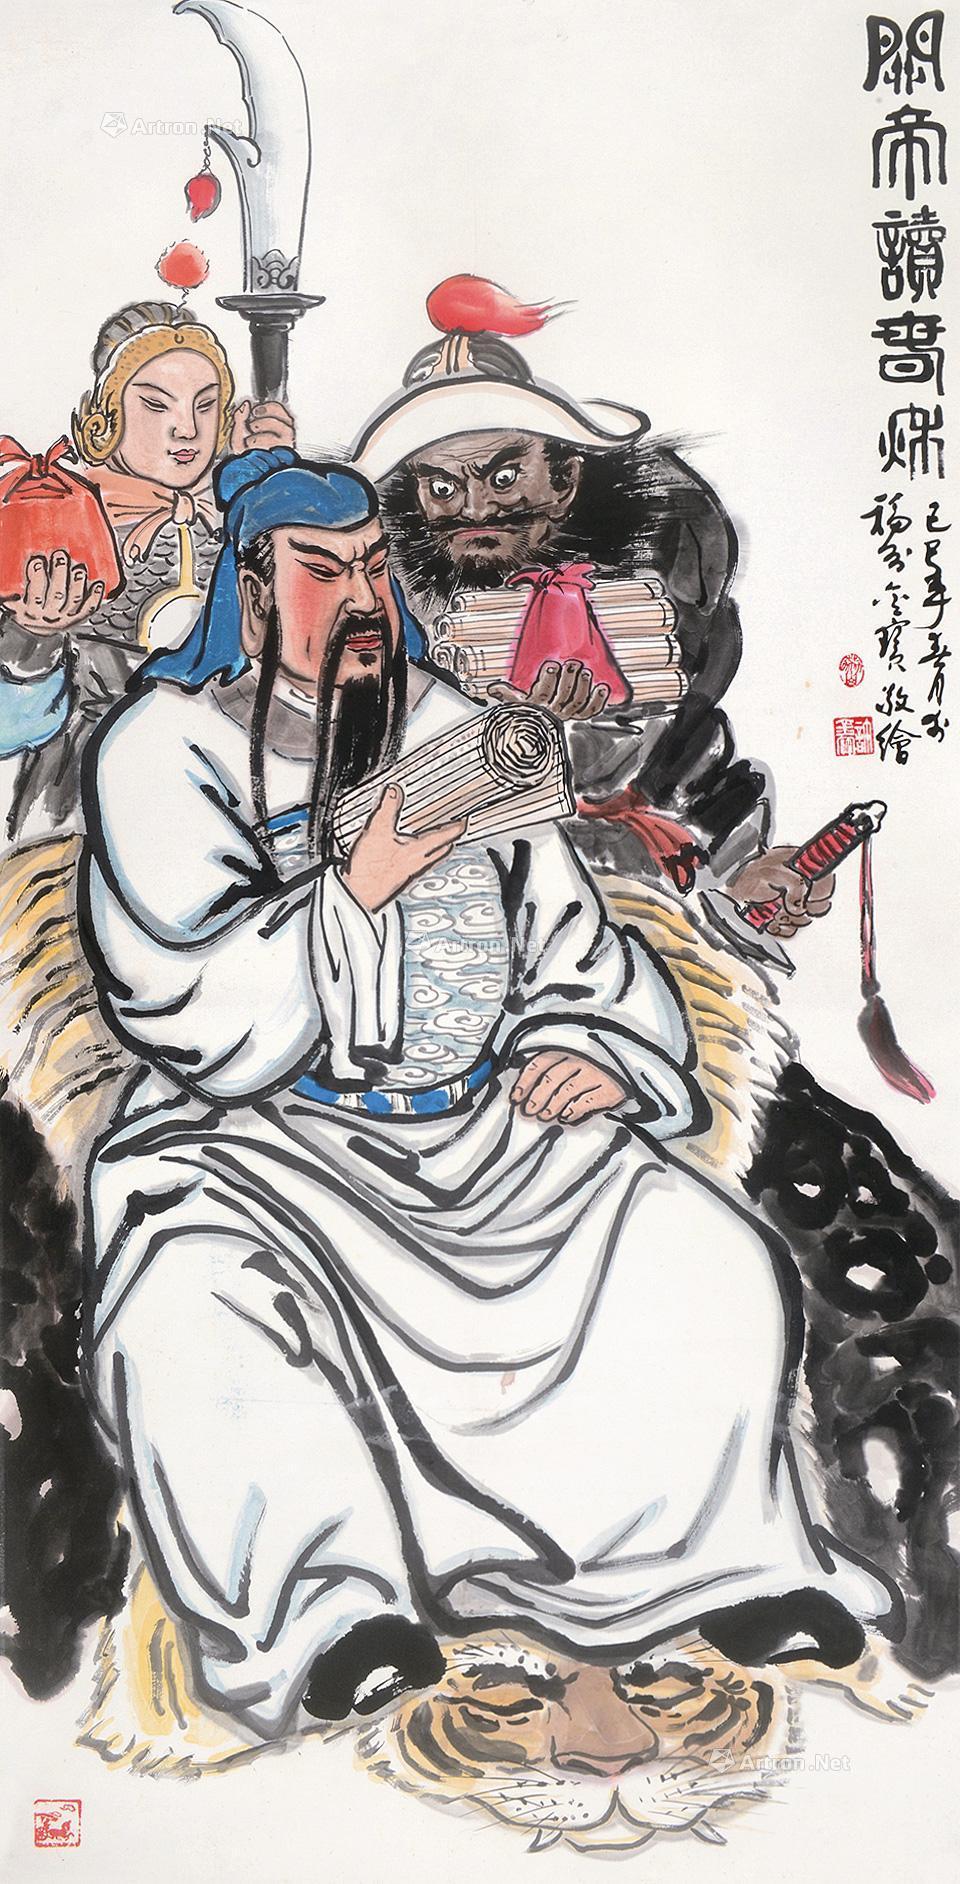 關帝讀春秋
己巳年春月於
福州金寶敬繪
Artron.Net
Artron.Net
Artron.Net